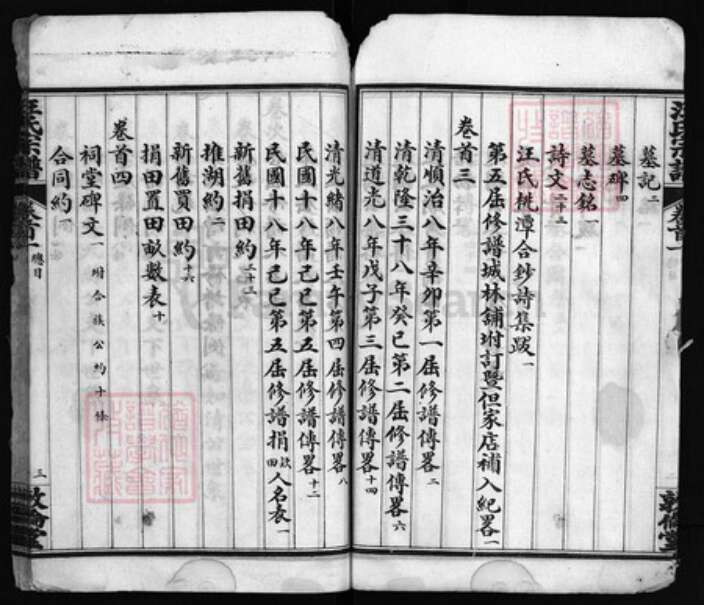 墓記二
墓碑四
墓志銘
詩文二十三
汪氏桃潭合鈔詩集跋一
第五屆修譜城林鋪坿訂暨但家店補入紀畧一
卷首三
清順治八年辛卯第一屆修譜傳畧二
清乾隆三十八年癸巳第二屆修譜傳畧六
清道光八年戊子第三屆修譜傳畧十四
清光緒八年壬午第四屆修譜傳畧八
民國十八年己巳第五屆修譜傳畧十二
民國十八年己巳第五屆修譜捐款田人名表一
新舊捐田約二十三
推湖約二
新舊買田約十六
捐田置田畝數表十
卷首四
祠堂碑文一 附合族公約十條
合同約
汪氏宗譜 卷首一 總目 三 敦倫堂